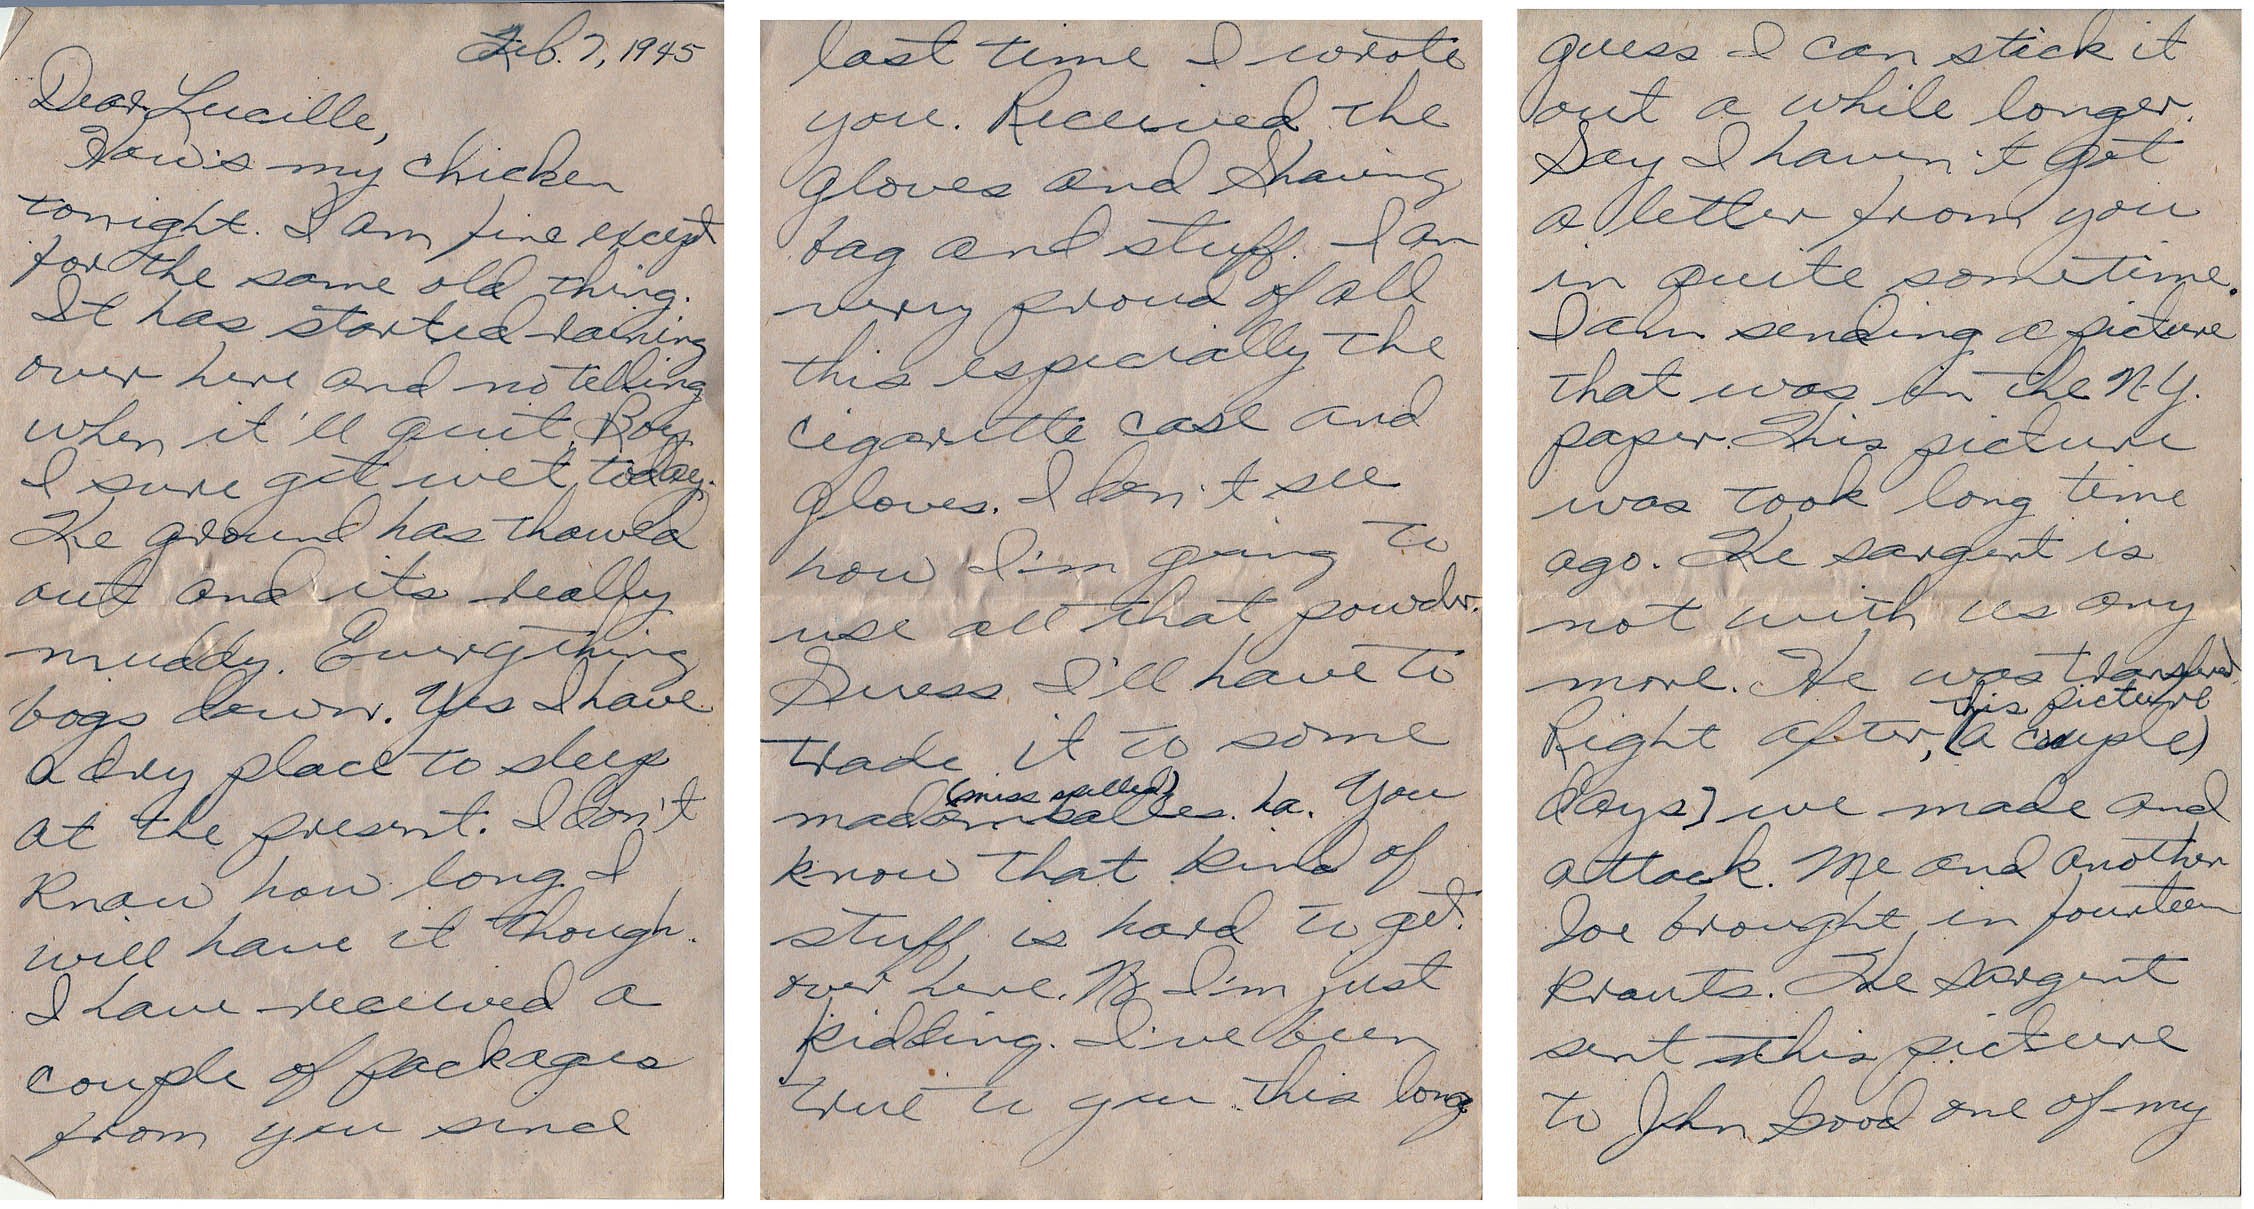 Feb. 7, 1945
Dear Lucille,
How's my chicken
tonight. I am fine except
for the same old thing.
It has started raining
over here and no telling
when it'll quit. Boy
I sure got wet today.
The ground has thawed
out and its really
muddy. Everything
bogs down. Yes I have
a dry place to sleep
at the present. I don't
know how long I
will have it though.
I have received a
couple of packages
from you since
last time I wrote
you. Received the
gloves and shaving
bag and stuff. I am
very proud of all
this especially the
cigarette case and
gloves. I don't see
how I'm going to
use all that powder.
Guess I'll have to
trade it to some
(miss spelled)
madomballes. ha. You
know that kind of
stuff is hard to get
over here. No I'm just
kidding. I've been
true to you this long
guess I can stick it
out a while longer.
Say I haven't got
a letter from you
in quite sometime.
I am sending a picture
that was in the N.Y.
paper. This picture
was took long time
ago. The sargent is
not with us any
more. He was transfered
this picture
Right after, (a couple)
days) we made and
attack. Me and another
Joe brought in fourteen
Krauts. The sargent
sent this picture
to John Good one of my